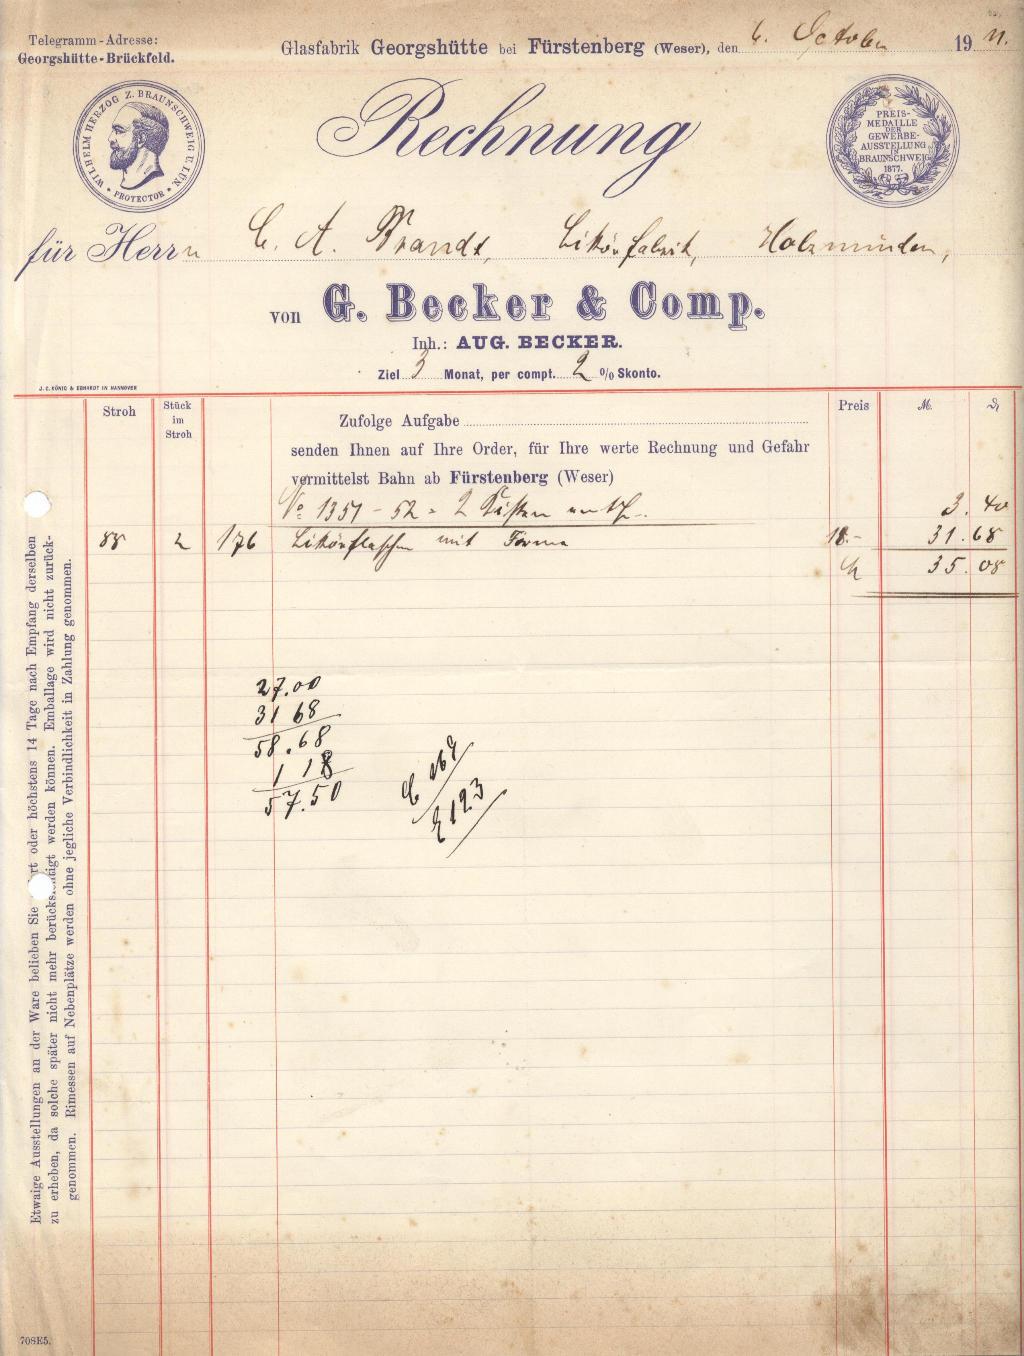 Telegramm-Adresse:
Georgshütte-Brückfeld.
Glasfabrik Georgshütte bei Fürstenberg (Weser), den 6. October 19 11.
WILHELM HERZOG Z. BRAUNSCHWEIG U. LÜN.
* PROTECTOR *
Rechnung
PREIS-
MEDAILLE
DER
GEWERBE-
AUSSTELLUNG
IN
BRAUNSCHWEIG
1877.
für Herrn C. A. Brandt, Likörfabrik, Holzminden,
von G. Becker & Comp.
Inh.: AUG. BECKER.
Ziel 3 Monat, per compt. 2 % Skonto.
J. C. KÖNIG & EBHARDT IN HANNOVER
Stroh
Stück
im
Stroh
Preis
M.
Zufolge Aufgabe
senden Ihnen auf Ihre Order, für Ihre werte Rechnung und Gefahr
vermittelst Bahn ab Fürstenberg (Weser)
No 1351 - 52 = 2 Kisten 3. 40
88 2 176 Likörflaschen mit Firma 18.- 31. 68
35. 08
27.00
31 68
58.68
1 18
57.50
169
123
Etwaige Ausstellungen an der Ware belieben Sie oder höchstens 14 Tage nach Empfang derselben
zu erheben, da solche später nicht mehr berücksichtigt werden können. Emballage wird nicht zurück-
genommen. Rimessen auf Nebenplätze werden ohne jegliche Verbindlichkeit in Zahlung genommen.
708E5.